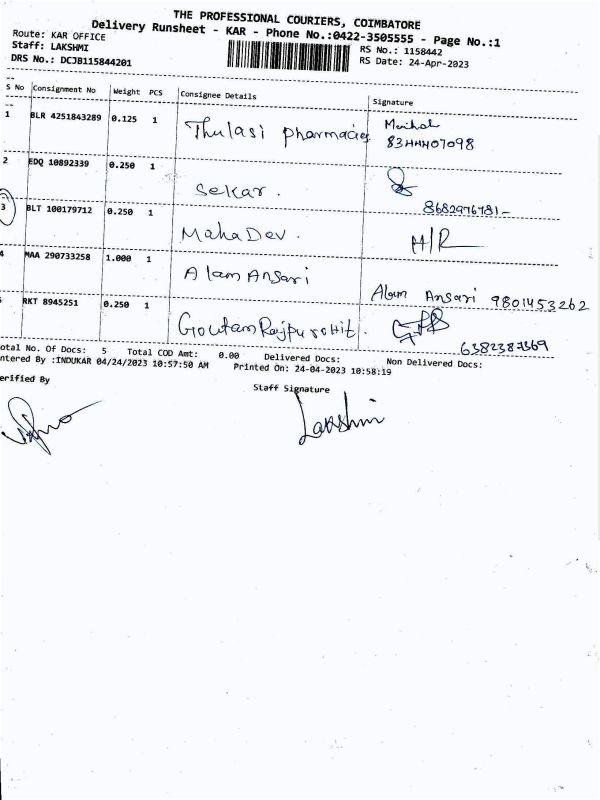 THE PROFESSIONAL COURIERS, COIMBATORE
Delivery Runsheet - KAR - Phone No.:0422-3505555 - Page No.:1
Route: KAR OFFICE
Staff: LAKSHMI
DRS No.: DCJB115844201
RS No.: 1158442
RS Date: 24-Apr-2023
S No Consignment No Weight PCS Consignee Details Signature
1 BLR 4251843289 0.125 1 Thulasi pharmacies
2 EDQ 10892339 0.250 1 Sekar. 8682976781-
3 BLT 100179712 0.250 1 MahaDev. H/R
4 MAA 290733258 1.000 1 Alam Ansari Alam Ansari 9801453262
RKT 8945251 0.250 1 Goutam Rajpurohit. 6382387369
otal No. Of Docs: 5 Total COD Amt: 0.00 Delivered Docs: Non Delivered Docs:
ntered By :INDUKAR 04/24/2023 10:57:50 AM Printed On: 24-04-2023 10:58:19
erified By Staff Signature
Lakshmi